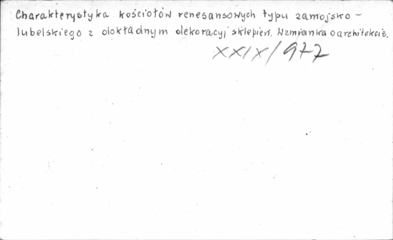 Charakterystyka kościołów renesansowych typu zamojsko-
lubelskiego z dokładnym dekoracyj sklepień. Wzmianka o architekcie.
XXIX/977